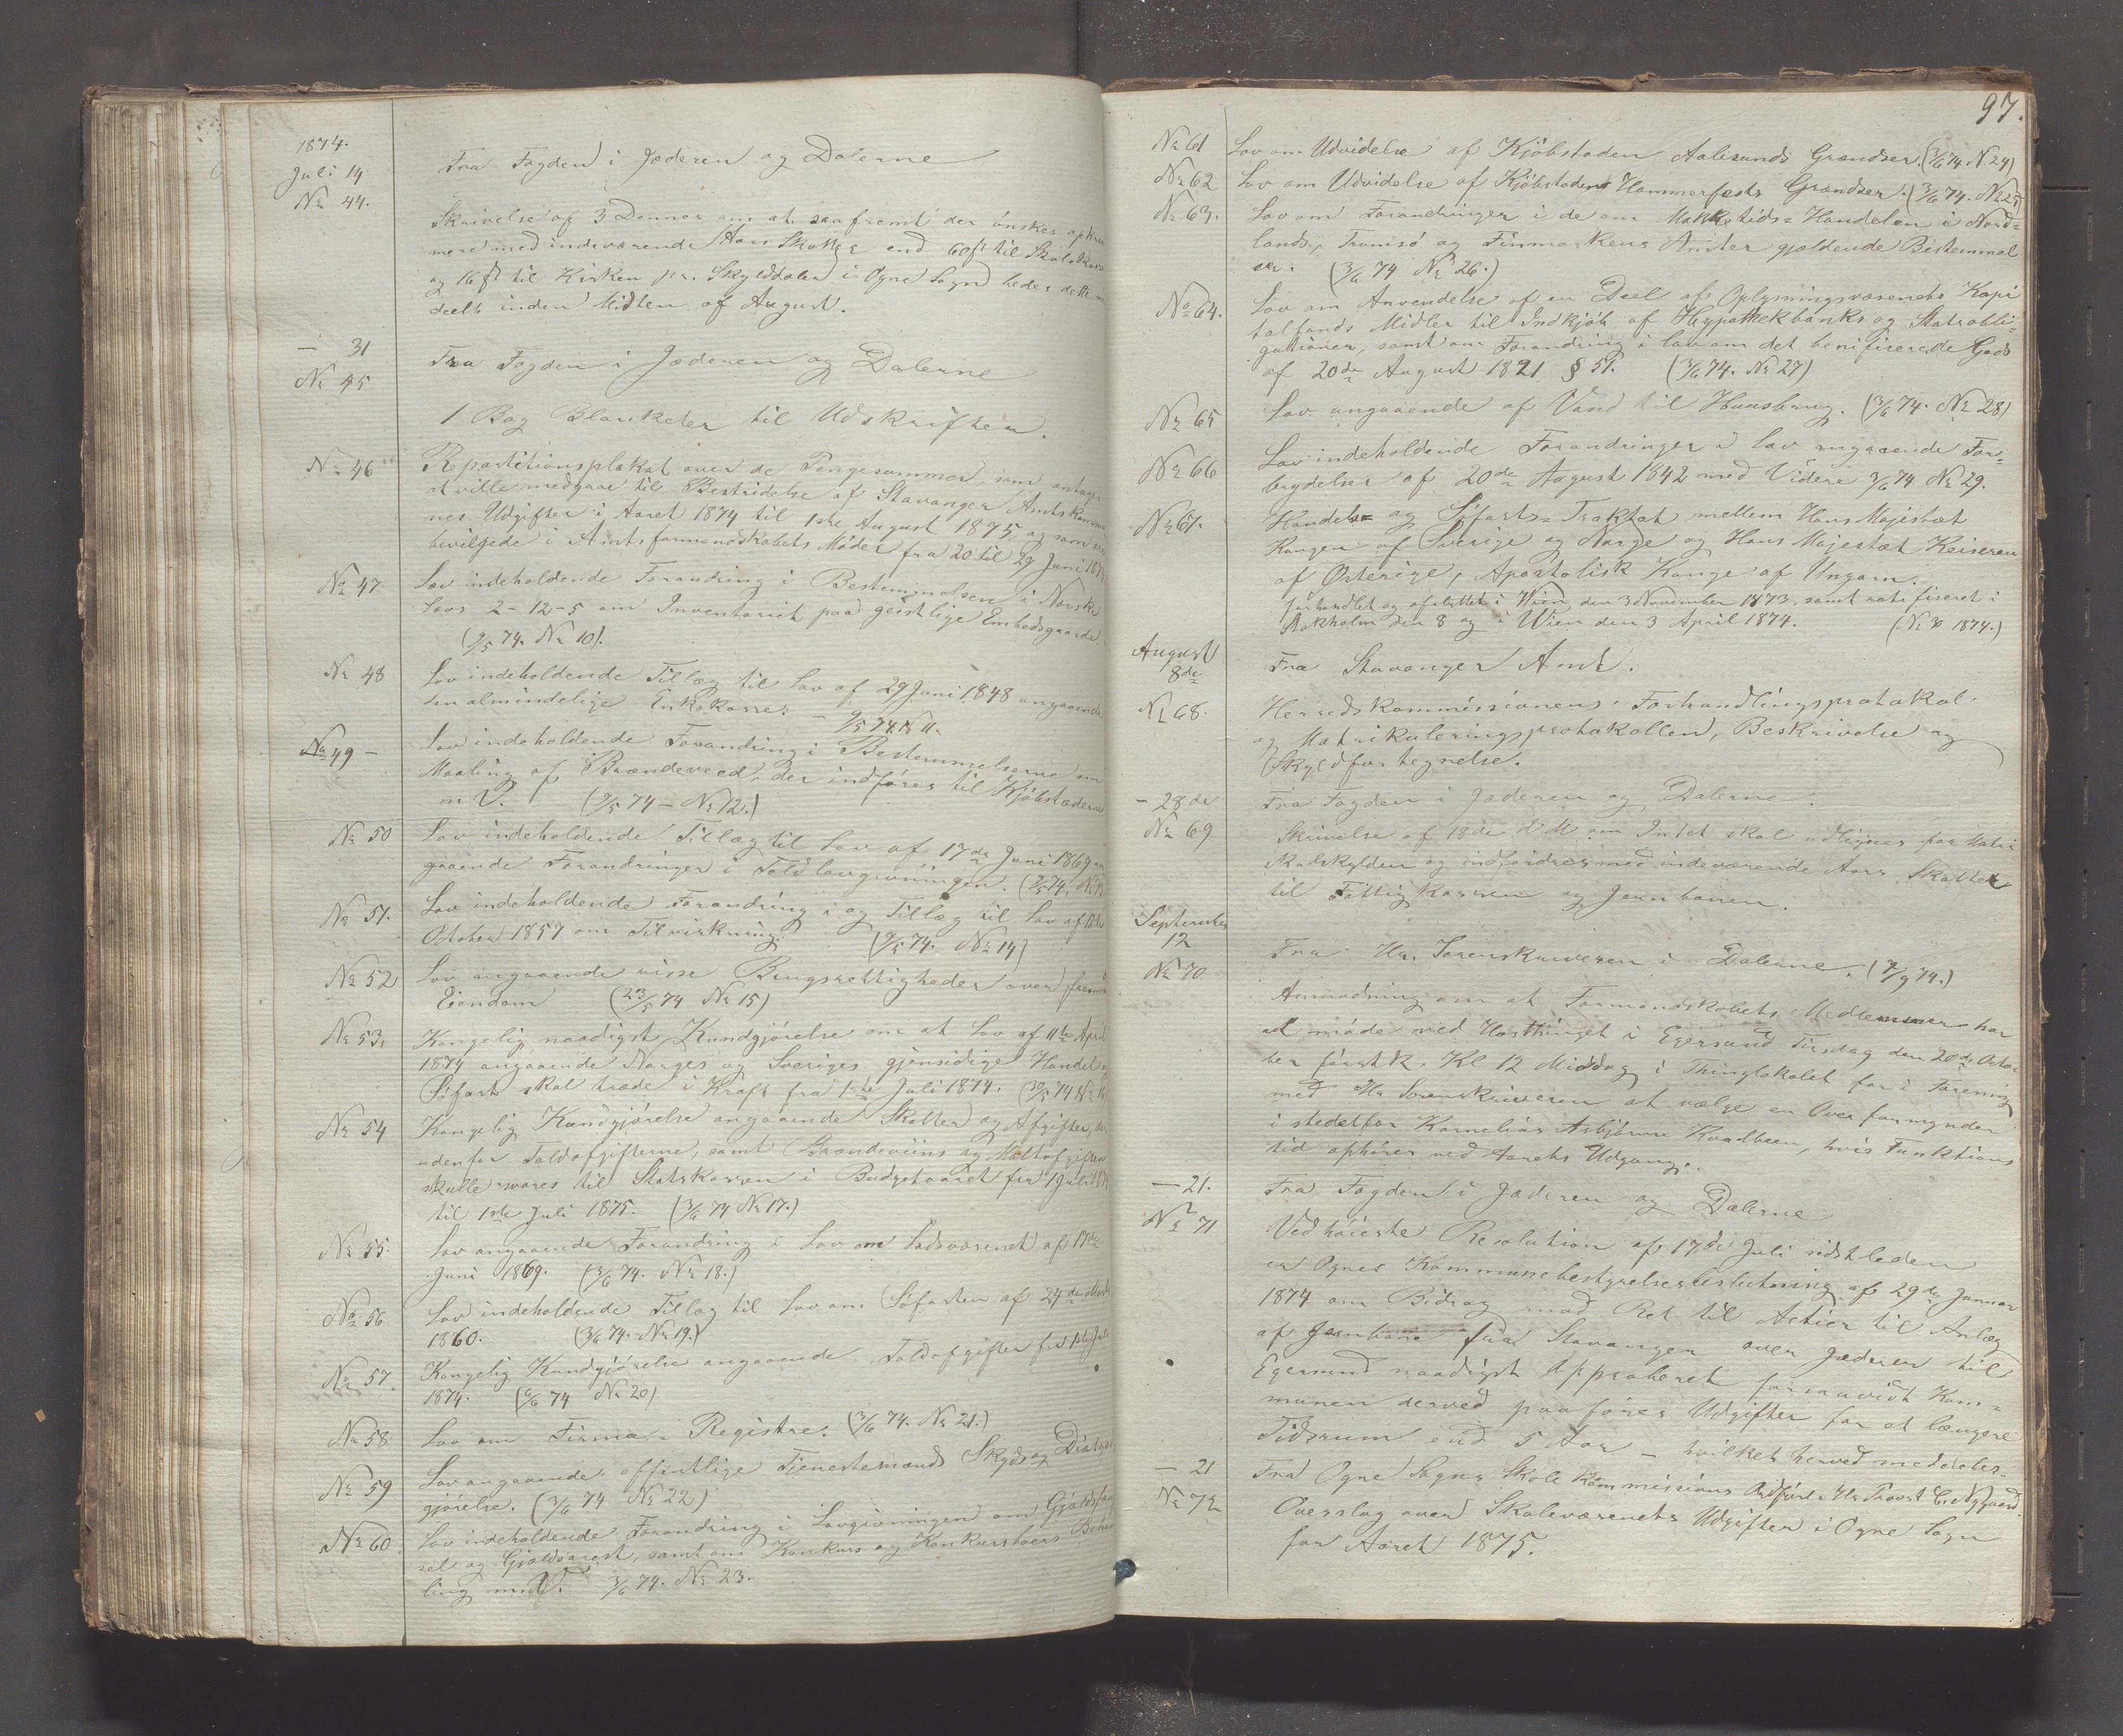 1874.
Juli 14
Fra Fogden i Jæderen og Dalerne
No 44.
Skrivelse af 3 Dennes om at saafremt der ønskes
mere med indeværende Aars Skatter end 60 ß til
og 16 ß til Kirken pr. Skylddaler i Ogne Sogn bedes dette
deelt inden Midten af August.
— 31
Fra Fogden i Jæderen og Dalerne
No 45
1 Bog Blanketer til Udskriften.
No 46
Repartitionsplakat over de Pengesummer, som antages
at ville medgaae til Bestridelse af Stavanger
nes Udgifter i Aaret 1874 til 1ste August 1875, og som ere
bevilgede i Amtsformandskabets Møder fra 20 til 29 Juni
No 47
Lov indeholdende Forandring i Bestemmelsen i Norske
Lovs 2-12-5 om Inventariet paa geistlige Embedsgaarde.
(9/5 74. No 10).
No 48
Lov indeholdende Tillæg til Lov af 29 Juni 1848 angaaende
den almindelige Enkekasse. — 9/5 74 No 11.
No 49 —
Lov indeholdende Forandring i Bestemmelserne om
Maaling af Brændeveed, der indføres til Kjøbstæderne
m V. (9/5 74 — No 12.)
No 50
Lov indeholdende Tillæg til Lov af 17de Juni 1869 an
gaaende Forandringer i Toldlovgivningen.
No 51.
Lov indeholdende Forandring i og Tillæg til Lov af
October 1857 om Tilvirkning. (9/5 74. No 14)
No 52
Lov angaaende visse Brugsrettigheder over fremmed
Eiendom (23/5 74 No 15)
No 53.
Kongelig naadigst Kundgjørelse om at Lov af 11te April
1874 angaaende Norges og Sveriges gjensidige Handel
Søfart skal træde i Kraft fra 1ste Juli 1874. (30/5 74 No
No 54
Kongelig Kundgjørelse angaaende Skatter og Afgifter, der
udenfor Toldafgifterne, samt Brændeviins og Maltafgiften
skulle svares til Statskassen i Budgetaaret fra 1 Juli
til 1ste Juli 1875. (3/6 74 No 17.)
No 55.
Lov angaaende Forandring i Lov om Lodsvæsenet af 17de
Juni 1869. (3/6 74. No 18.)
No 56
Lov indeholdende Tillæg til Lov om Søfarten af 24de Marts
1860. (3/6 74. No 19.)
No 57.
Kongelig Kundgjørelse angaaende Toldafgifter fra 1ste Juli
1874. (6/6 74 No 20)
No 58
Lov om Firma-Registre. (3/6 74. No 21.)
No 59
Lov angaaende offentlige Tjenestemænds Skyds og
gjørelse. (3/6 74 No 22)
No 60
Lov indeholdende Forandring i Lovgivningen om
sel og Gjældsarest, samt om Konkurs og Konkursboers
ling m.V. 3/6 74. No 23.
97.
No 61
Lov om Udvidelse af Kjøbstaden Aalesunds Grændser. (3/6 74 N. 24)
No 62
Lov om Udvidelse af Kjøbstaden Hammerfests Grændser. (3/6 74. No 25)
No 63.
Lov om Forandringer i de om Makketids-Handelen i Nord-
lands, Tromsø og Finmarkens Amter gjældende Bestemmel
ser. (3/6 74 No 26.)
No 64.
Lov om Anvendelse af en Deel af Oplysningsvæsenets Kapi
talfonds Midler til Indkjøb af Hypothekbanks og Statsobli-
gationer, samt om Forandring i lov om det benificerede Gods
af 20de August 1821 § 51. (3/6 74. No 27)
No 65
Lov angaaende af Vand til Huusbrug. (3/6 74. No 28)
No 66
Lov indeholdende Forandringer i Lov angaaende For-
brydelser af 20de August 1842 med Videre 3/6 74 No 29.
No 67.
Handels- og Søfarts-Traktat mellem Hans Majestæt
Kongen af Sverige og Norge og Hans Majestæt Keiseren
af Østerige, Apostolisk Konge af Ungarn.
forhandlet og afsluttet i Wien den 3 November 1873, samt ratifiseret i
Stokholm den 8 og i Wien den 3 April 1874. (No 30 1874.)
August
8de
Fra Stavanger Amt.
No 68.
Herredskommissionens Forhandlingsprotokol
og Matrikuleringsprotokollen, Beskrivelse og
Skyldfortegnelse.
— 28de
Fra Fogden i Jæderen og Dalerne.
No 69
Skrivelse af 18de d M om Intet skal udlignes paa Matri
kulskylden og indfordres med indeværende Aars Skatter
til Fattigkassen og Jernbanen.
September
12
Fra Hr. Sorenskriveren i Dalerne. (7/9 74.)
No 70
Anmodning om at Formandskabets Medlemmer har
at møde ved Høstthinget i Egersund Tirsdag den 20de Octo-
ber førstk. Kl 12 Middag i Thinglokalet for i Forening
med Hr Sorenskriveren at vælge en Overformynder
i stedetfor Kornelius Asbjørnsen Kvalbeen, hvis Funktions
tid ophører ved Aarets Udgang.
— 21.
Fra Fogden i Jæderen og Dalerne
No 71
Ved høieste Resolution af 17de Juli sidstleden
er Ognes Kommunebestyrelsesbeslutning af 29de Januar
1874 om Bidrag mod Ret til Actier til Anlæg
af Jernbane fra Stavanger over Jæderen til
Egersund naadigst Approberet forsaavidt Kom-
munen derved paaføres Udgifter for et længere
Tidsrum end 5 Aar — hvilket herved meddeles.
— 21
Fra Ogne Sogns Skolekommissions Ordfører Hr Provst C. Nygaard.
No 72
Overslag over Skolevæsenets Udgifter i Ogne Sogn
for Aaret 1875.